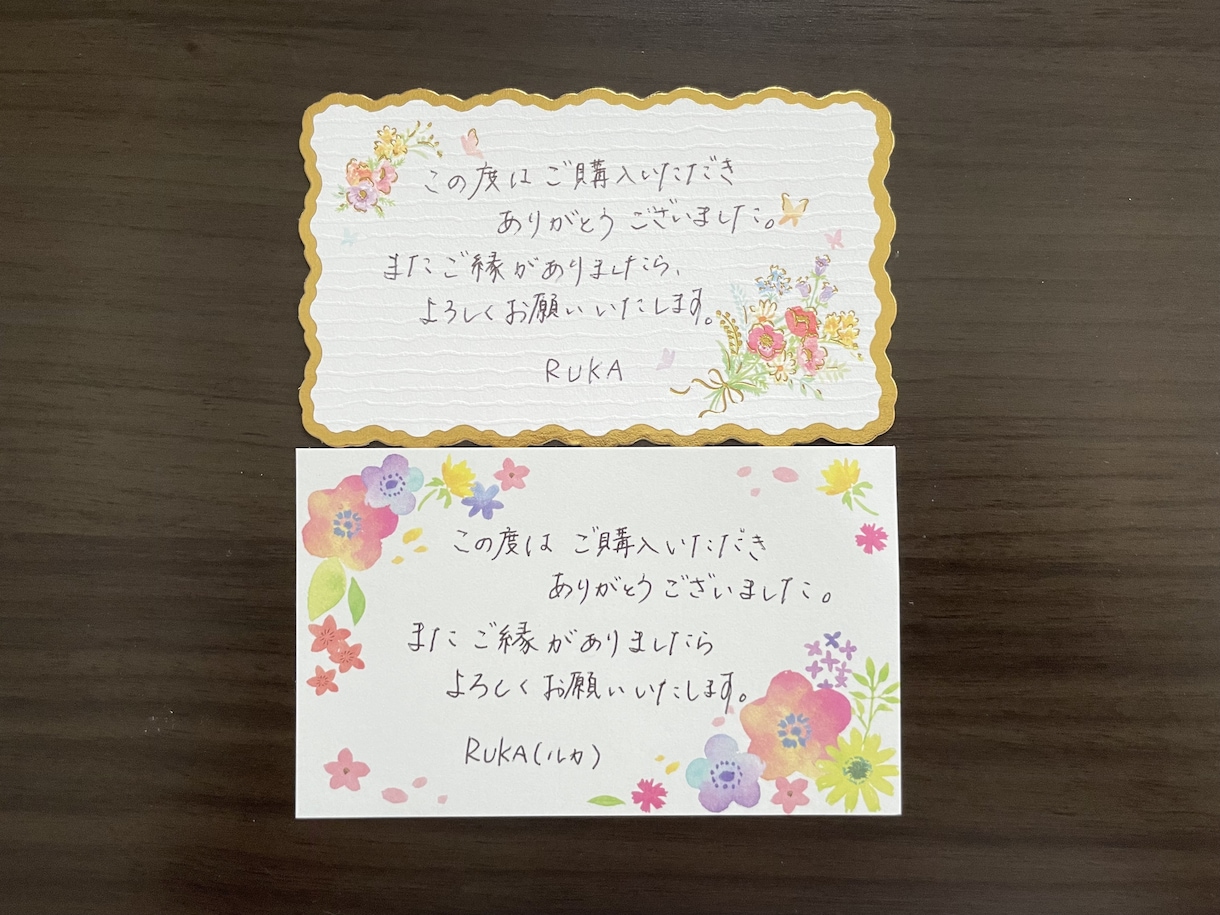 この度は ご購入いただき
ありがとう ございました。
また ご縁がありましたら、
よろしくお願いいたします。
RUKA
この度は ご購入いただき
ありがとう ございました。
また ご縁がありましたら
よろしく お願いいたします。
RUKA(ルカ)